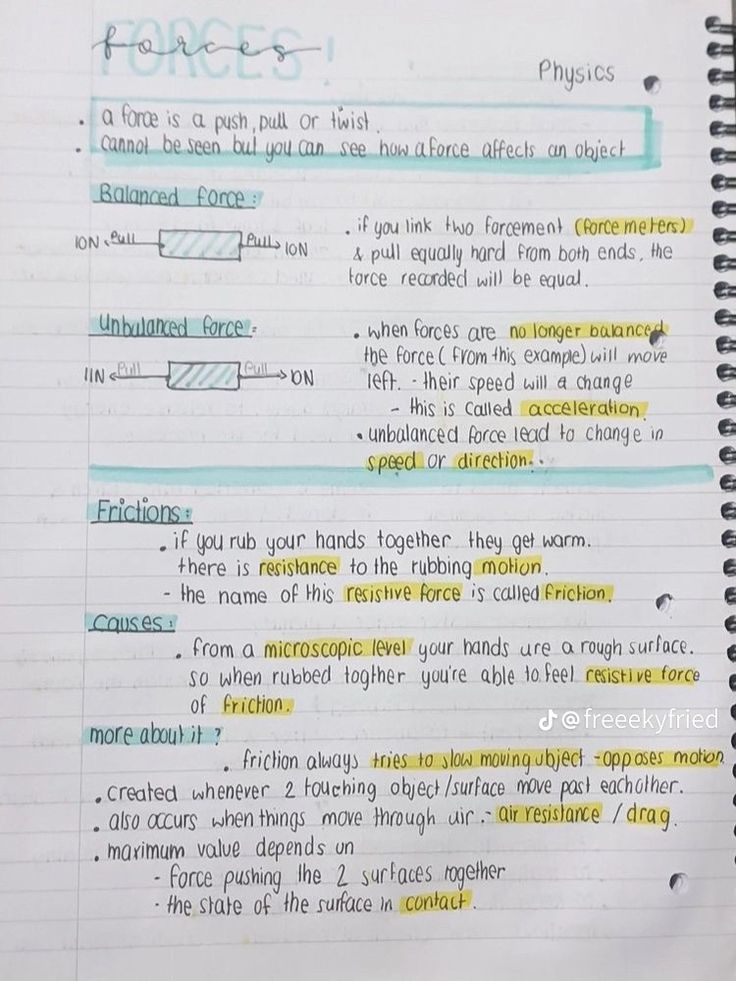 FORCES!
forces
Physics
. a force is a push, pull or twist.
. cannot be seen but you can see how a force affects an object
Balanced force:
10N Pull Pull 10N
. if you link two forcement (force meters)
& pull equally hard from both ends, the
force recorded will be equal.
Unbalanced force:
11N Pull Pull 10N
. when forces are no longer balanced
the force (from this example) will move
left. - their speed will a change
- this is called acceleration.
. unbalanced force lead to change in
speed or direction.
Frictions:
. if you rub your hands together they get warm.
there is resistance to the rubbing motion.
- the name of this resistive force is called friction.
Causes:
. from a microscopic level your hands are a rough surface.
so when rubbed togther you're able to feel resistive force
of friction.
more about it?
. friction always tries to slow moving object - opposes motion
. created whenever 2 touching object/surface move past eachother.
. also occurs when things move through air. - air resistance / drag.
. maximum value depends on
- force pushing the 2 surfaces together
- the state of the surface in contact.
@freeekyfried